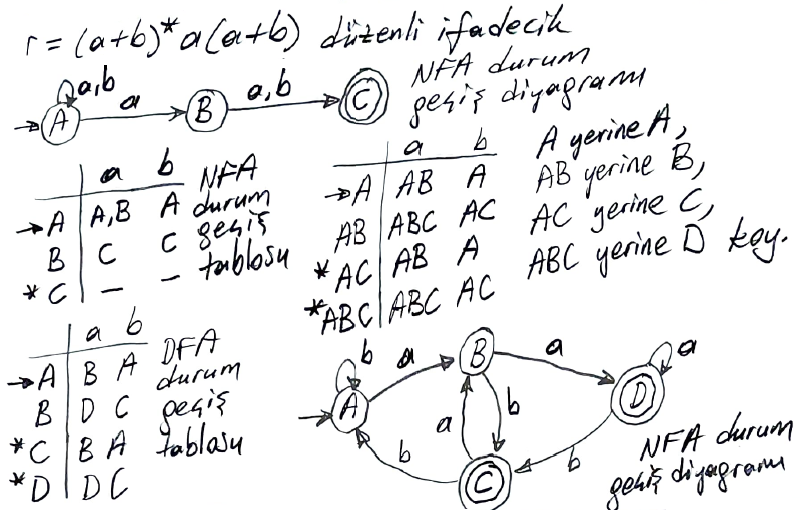 r = (a+b)* a(a+b) düzenli ifadecik
a,b
→ A
a
B
a,b
C
NFA durum
geçiş diyagramı
a b
→ A A,B A
B C C
* C – –
NFA
durum
geçiş
tablosu
a b
→ A AB A
AB ABC AC
* AC AB A
* ABC ABC AC
A yerine A,
AB yerine B,
AC yerine C,
ABC yerine D koy.
a b
→ A B A
B D C
* C B A
* D D C
DFA
durum
geçiş
tablosu
b
A
a
B
a
D
a
a
b
b
C
b
NFA durum
geçiş diyagramı